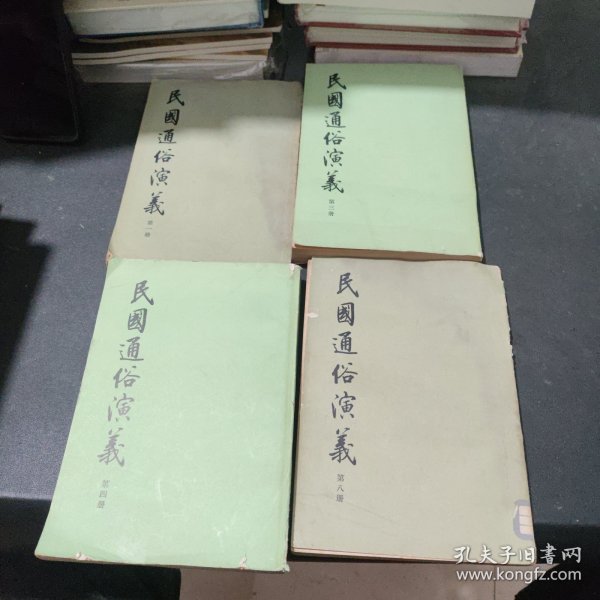 民國通俗演義
第一册
民國通俗演義
第三册
民國通俗演義
第四册
民國通俗演義
第八册
孔夫子旧書网
www.kongfz.com